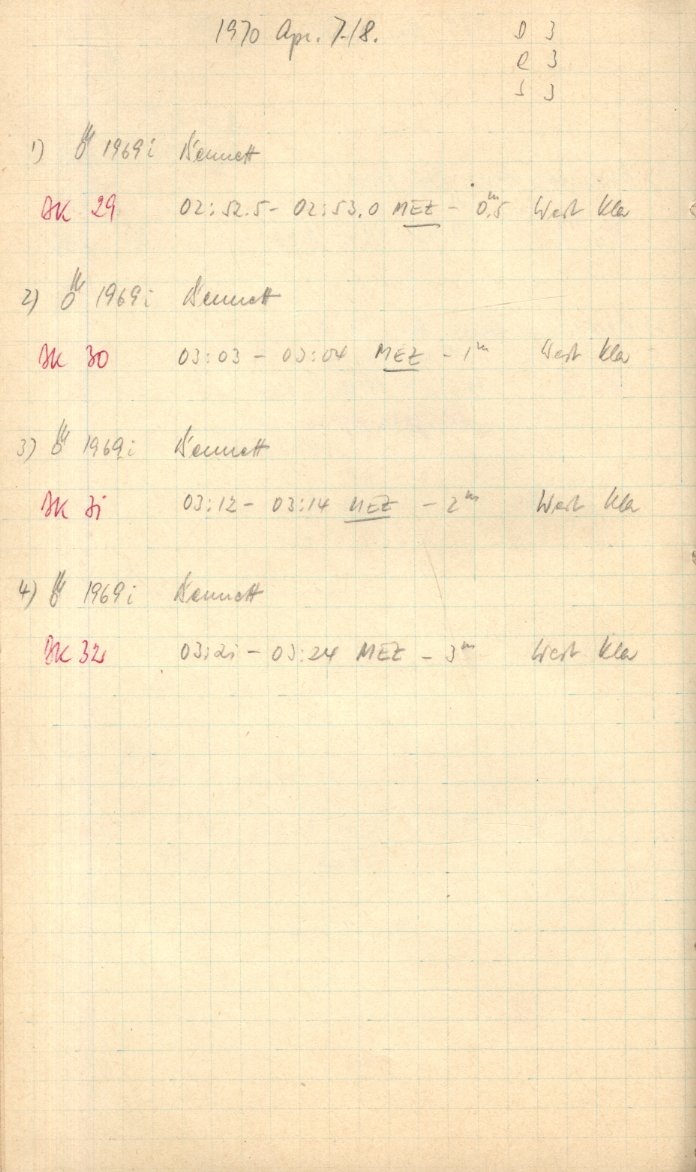 1970 Apr. 7./8.
D 3
R 3
S 3
1) ☄ 1969i Bennett
BK 29 02:52.5 - 02:53.0 MEZ - 0.5ᵐ West klar
2) ☄ 1969i Bennett
BK 30 03:03 - 03:04 MEZ - 1ᵐ West klar
3) ☄ 1969i Bennett
BK 31 03:12 - 03:14 MEZ - 2ᵐ West klar
4) ☄ 1969i Bennett
BK 32 03:21 - 03:24 MEZ - 3ᵐ West klar